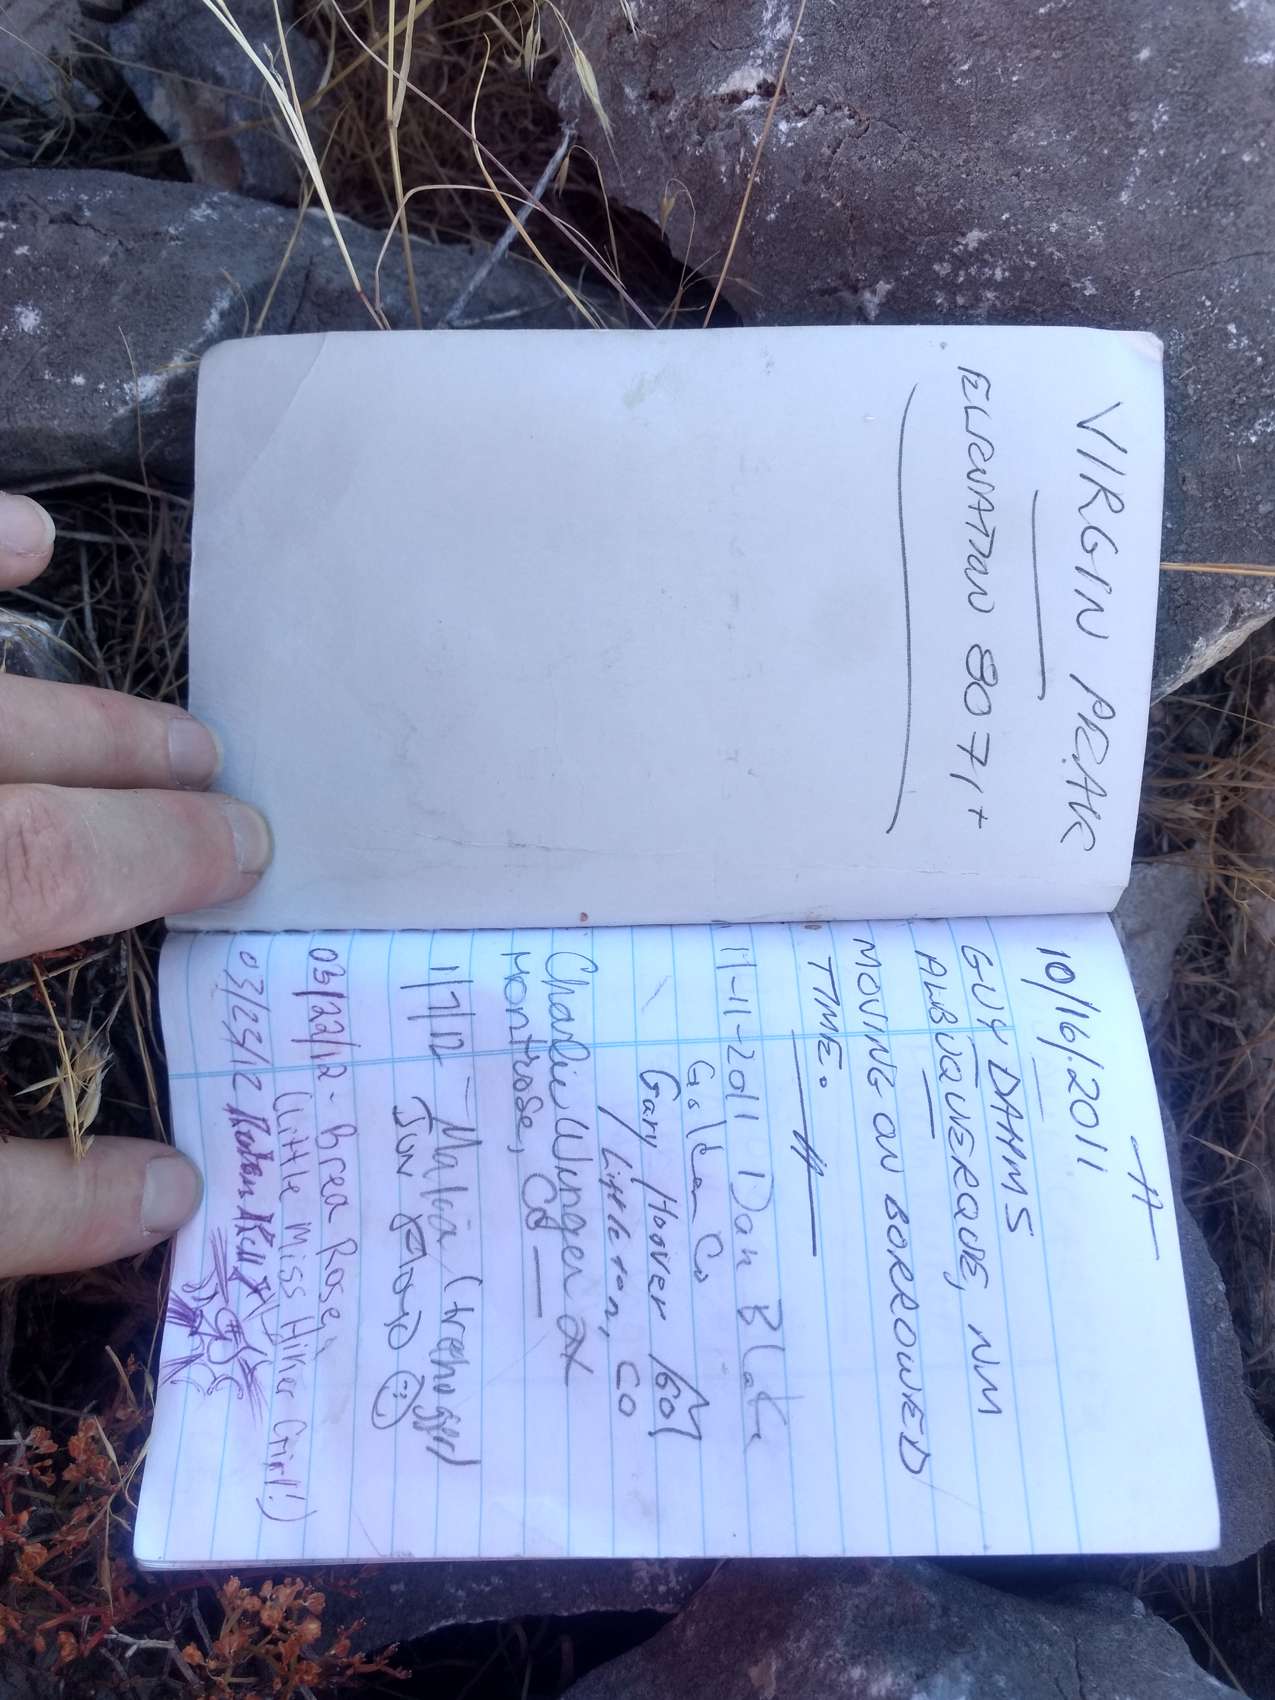 VIRGIN PEAK
ELEVATION 8071+
10/16/2011
GUY DAHMS
ALBUQUERQUE, NM
MOVING ON BORROWED
TIME.
11-11-2011 Dan Black
Golden Co
Gary Hoover
Littleton, CO
Charlie Winger
Montrose, CO
1/7/12 -
03/22/12 - Brea Rose
(Little Miss Hiker Girl!)
03/23/12